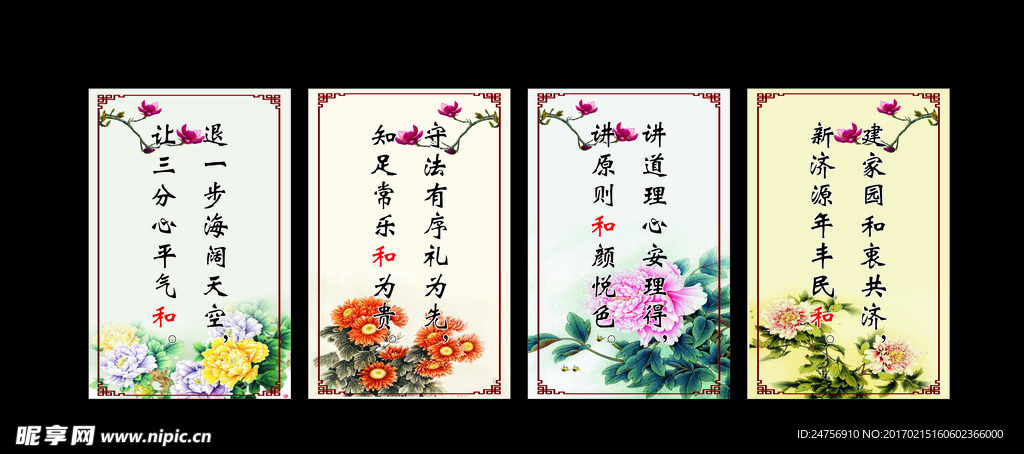 退一步海阔天空，
让三分心平气和。
守法有序礼为先，
知足常乐和为贵。
讲道理心安理得，
讲原则和颜悦色。
建家园和衷共济，
新济源年丰民和。
昵享网 www.nipic.cn
ID:24756910 NO:20170215160602366000